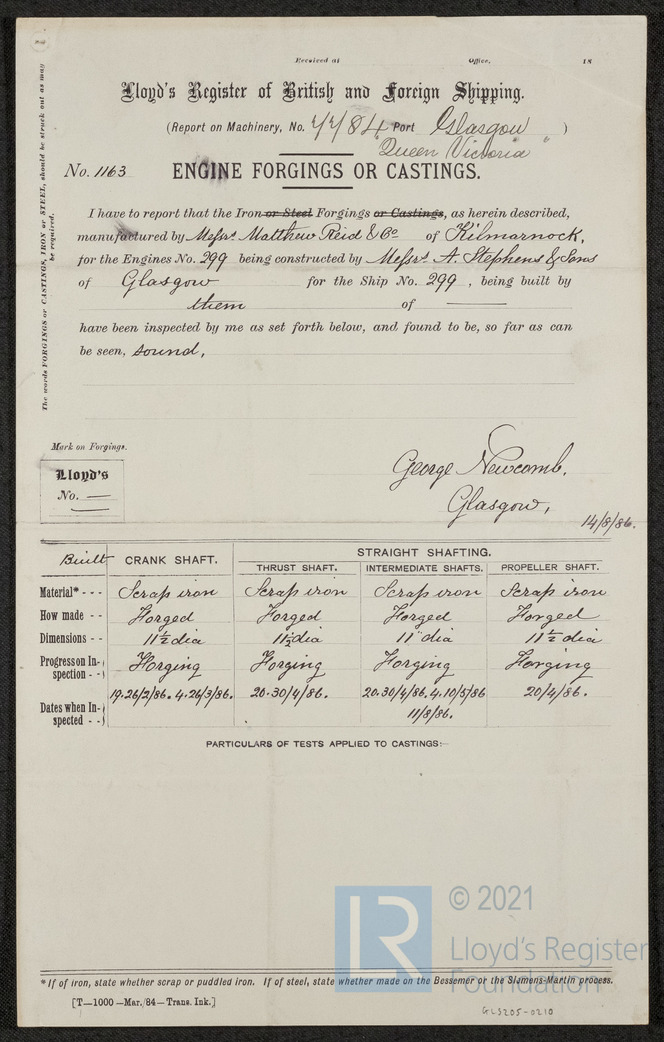 Received at Office, 18
Lloyd's Register of British and Foreign Shipping.
(Report on Machinery, No. 7784 Port Glasgow )
"Queen Victoria"
No. 1163 ENGINE FORGINGS OR CASTINGS.
The words FORGINGS or CASTINGS, IRON or STEEL, should be struck out as may
be required.
I have to report that the Iron or Steel Forgings or Castings, as herein described,
manufactured by Messrs. Matthew Reid & Co of Kilmarnock,
for the Engines No. 299 being constructed by Messrs. A. Stephens & Sons
of Glasgow for the Ship No. 299, being built by
them of ——
have been inspected by me as set forth below, and found to be, so far as can
be seen, sound,
Mark on Forgings.
Lloyd's
No. —
George Newcomb.
Glasgow,
14/8/86.
Built CRANK SHAFT. STRAIGHT SHAFTING.
THRUST SHAFT. INTERMEDIATE SHAFTS. PROPELLER SHAFT.
Material* - - - Scrap iron Scrap iron Scrap iron Scrap iron
How made - - Forged Forged Forged Forged
Dimensions - - 11½ dia 11½ dia 11" dia 11½ dia
Progress on In-} Forging Forging Forging Forging
spection - -}
19.26/2/86. 4.26/3/86. 20.30/4/86. 20.30/4/86. 4.10/5/86 20/4/86.
Dates when In-} 11/8/86.
spected - -}
PARTICULARS OF TESTS APPLIED TO CASTINGS:—
© 2021
LR Lloyd's Register
Foundation
*If of iron, state whether scrap or puddled iron. If of steel, state whether made on the Bessemer or the Siemens-Martin process.
[T—1000—Mar./84—Trans. Ink.]
GLS205-0210